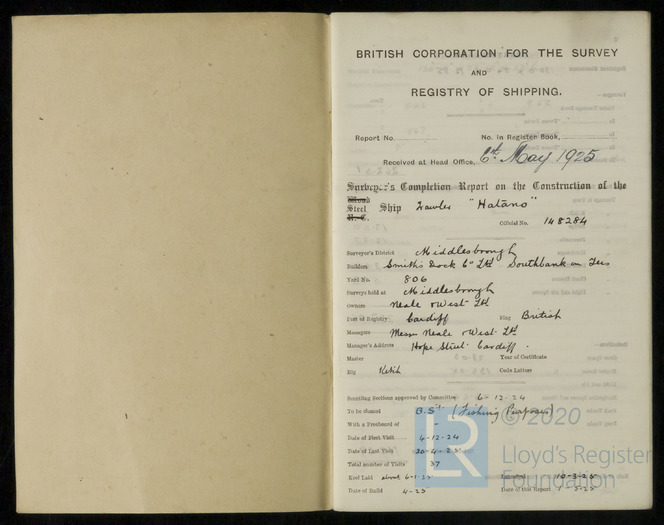 BRITISH CORPORATION FOR THE SURVEY
AND
REGISTRY OF SHIPPING.
Report No. No. in Register Book,
Received at Head Office, 6th May 1925
Surveyor's Completion Report on the Construction of the
Wood
Steel Ship Trawler "Hatano"
Official No. 148284
Surveyor's District Middlesbrough
Builders Smith's Dock Co Ltd Southbank on Tees
Yard No. 806
Surveys held at Middlesbrough
Owners Neale & West Ltd
Port of Registry Cardiff Flag British
Managers Messrs Neale & West Ltd
Manager's Address Hope Street Cardiff.
Master Year of Certificate
Rig Ketch Code Letters
Scantling Sections approved by Committee 6-12-24
To be classed B.S* (Fishing Purposes)
With a Freeboard of -
Date of First Visit 4-12-24
Date of Last Visit 20-4-25
Total number of Visits 37
Keel Laid about 6-1-25 Launched 10-3-25
Date of Build 4-25 Date of this Report
© 2020
LR
Lloyd's Register
Foundation